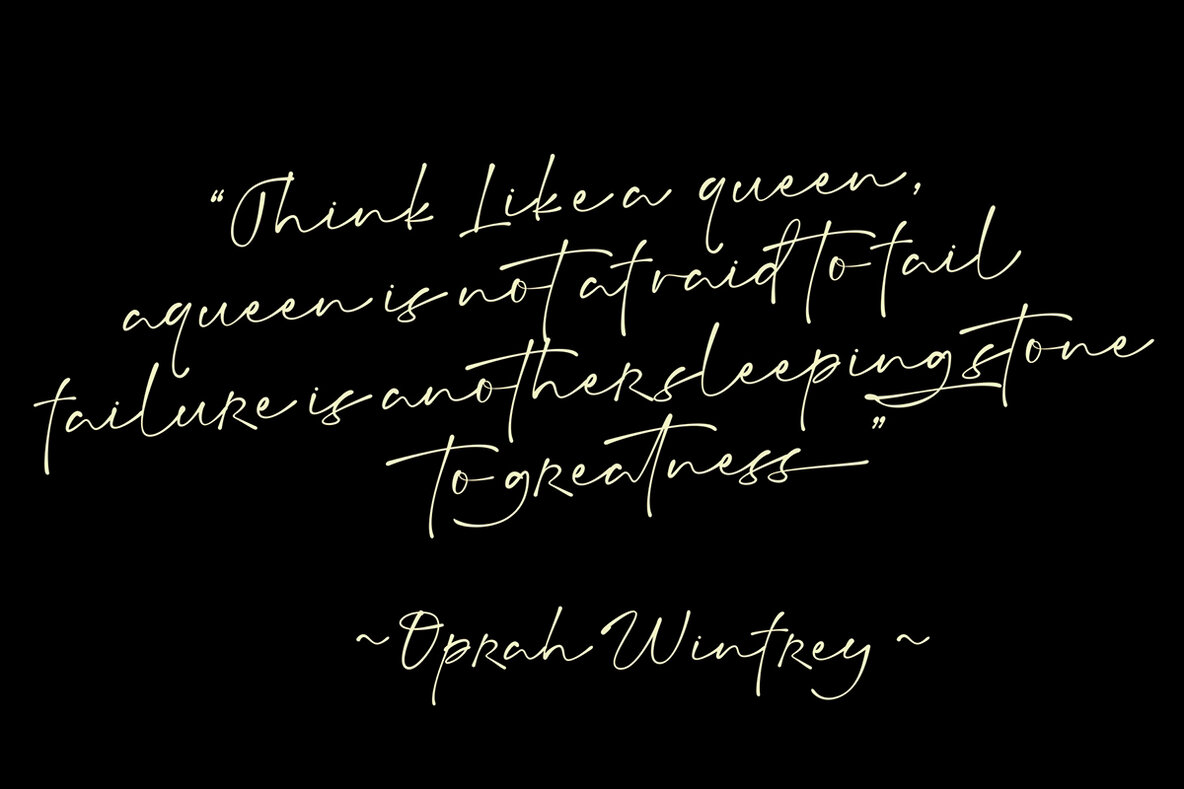 “Think Like a queen,
a queen is not afraid to fail
failure is another sleeping stone
to greatness ”
~ Oprah Winfrey ~